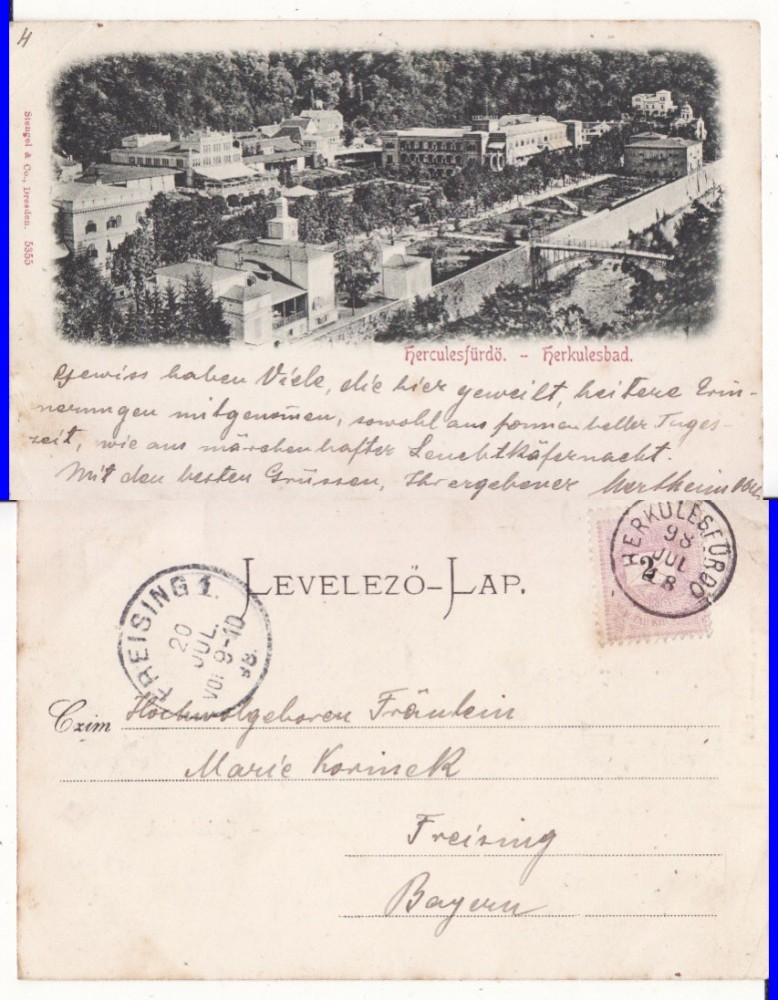 4
Stengel & Co., Dresden. 5355
Herculesfürdö. - Herkulesbad.
Gewiss haben Viele, die hier geweilt, heitere Erin-
nerungen mitgenom̅en, sowohl aus sonnenheller Tages-
zeit, wie aus märchenhafter Leuchtkäfernacht.
Mit den besten Grüssen, Ihr ergebener
LEVELEZŐ-LAP.
HERKULESFÜRDŐ
98
JUL
18
FREISING 1.
20
JUL.
VOR 9-10
98.
Czim Hochwolgeboren Fräulein
Marie Korinek
Freising
Bayern